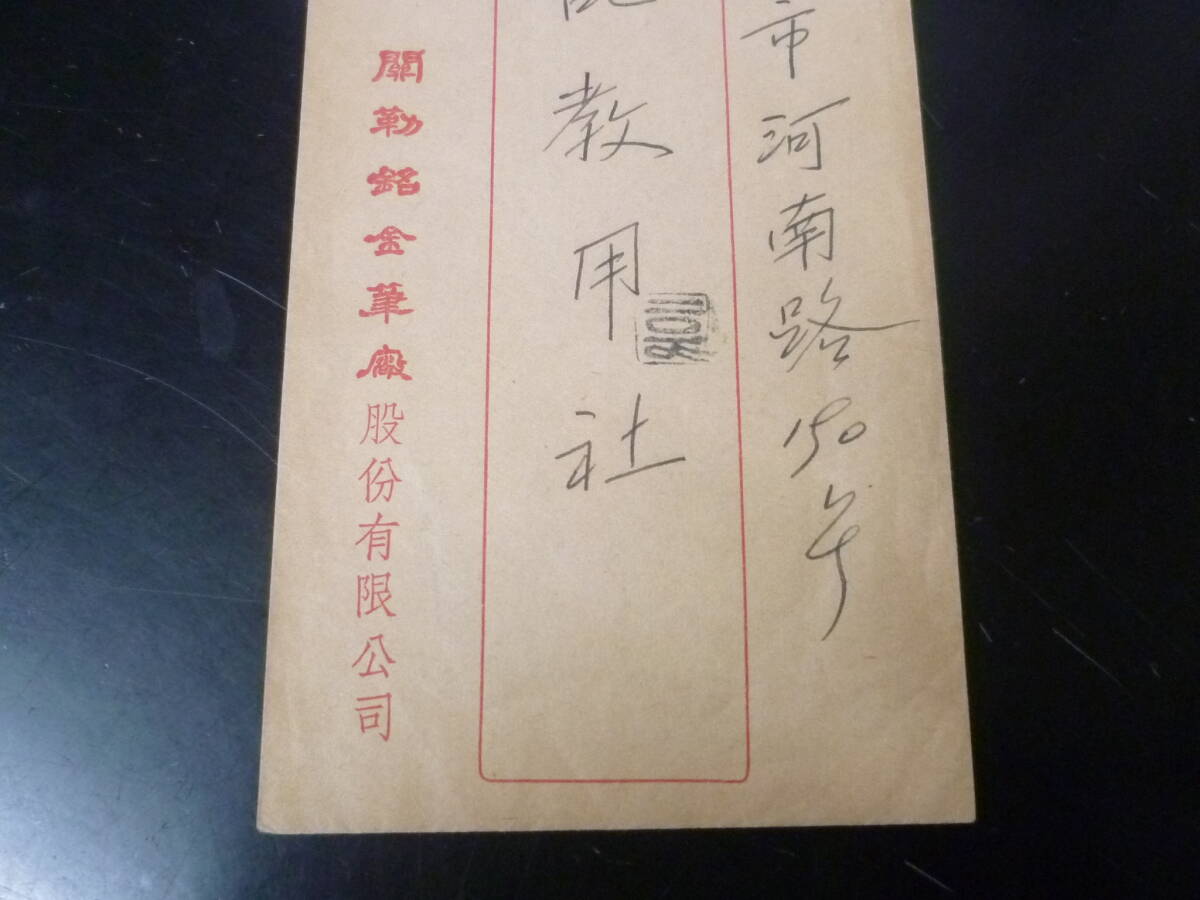 市河南路150号
教用社
關勒銘金筆廠股份有限公司